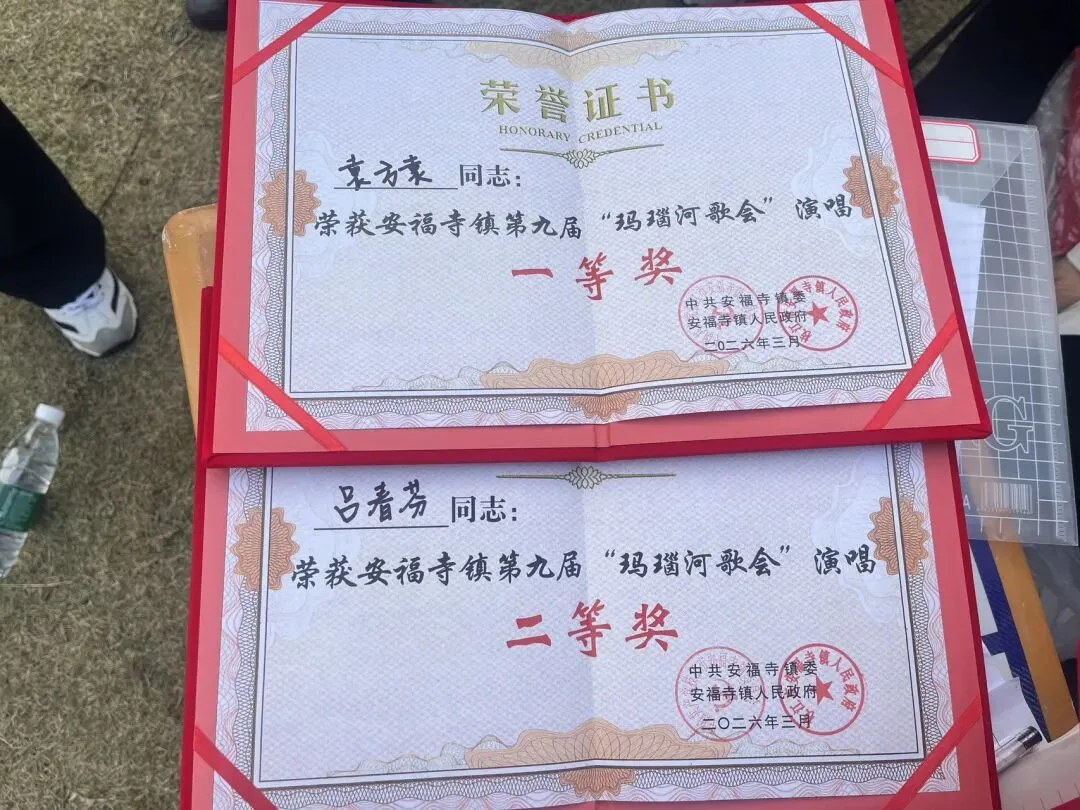 荣誉证书
HONORARY CREDENTIAL
袁方袁 同志：
荣获安福寺镇第九届“玛瑙河歌会”演唱
一等奖
中共安福寺镇委
安福寺镇人民政府
二0二六年三月
吕春芬 同志：
荣获安福寺镇第九届“玛瑙河歌会”演唱
二等奖
中共安福寺镇委
安福寺镇人民政府
二〇二六年三月
G